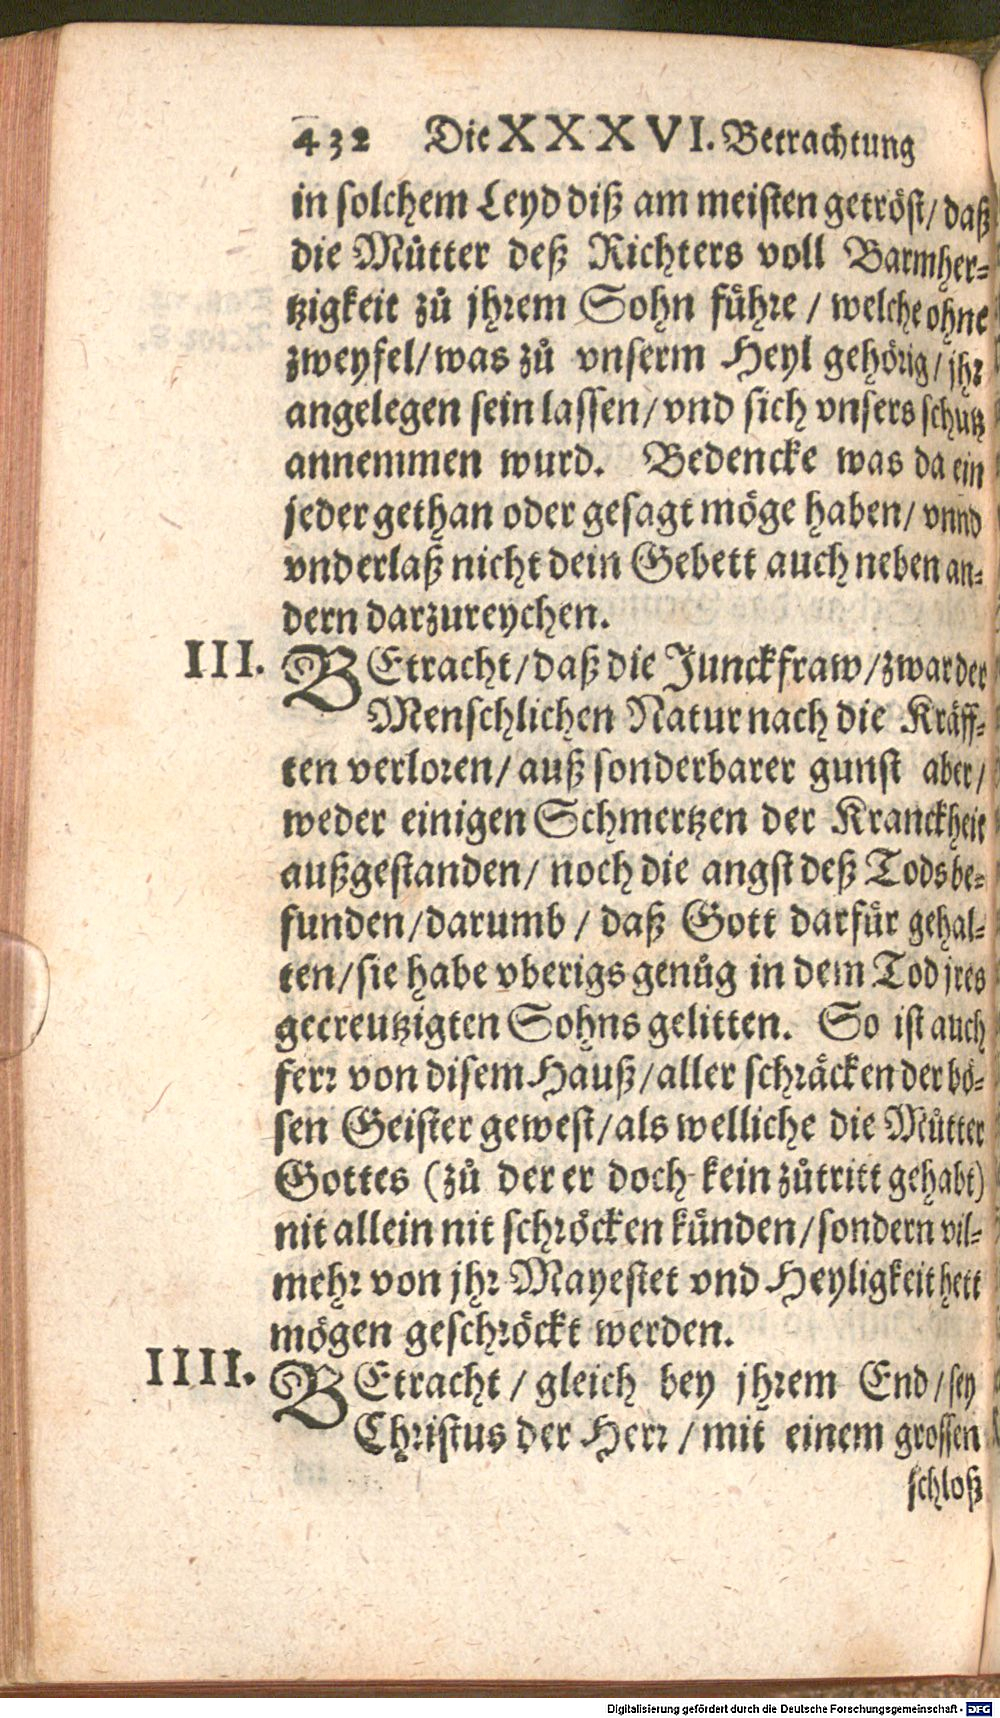 432 Die XXXVI. Betrachtung
in solchem Leyd diß am meisten getröst/ daß
die Můtter deß Richters voll Barmher-
tzigkeit zů jhrem Sohn fůhre / welche ohne
zweyfel/ was zů vnserm Heyl gehörig/ jhr
angelegen sein lassen/ vnd sich vnsers schutz
annemmen wurd. Bedencke was da ein
jeder gethan oder gesagt möge haben/ vnnd
vnderlaß nicht dein Gebett auch neben an-
dern darzureychen.
III. BEtracht/ daß die Junckfraw/ zwar der
Menschlichen Natur nach die Kräff-
ten verloren/ auß sonderbarer gunst aber/
weder einigen Schmertzen der Kranckheit
außgestanden/ noch die angst deß Tods be-
funden/ darumb / daß Gott darfür gehal-
ten/ sie habe vberigs genůg in dem Tod jres
gecreutzigten Sohns gelitten. So ist auch
ferr von disem Hauß/ aller schräcken der bö-
sen Geister gewest/ als welliche die Můtter
Gottes (zů der er doch kein zůtritt gehabt)
nit allein nit schröcken künden/ sondern vil-
mehr von jhr Mayestet vnd Heyligkeit hett
mögen geschröckt werden.
IIII. BEtracht / gleich bey jhrem End / sey
Christus der Herr / mit einem grossen
schloß
Digitalisierung gefördert durch die Deutsche Forschungsgemeinschaft - DFG